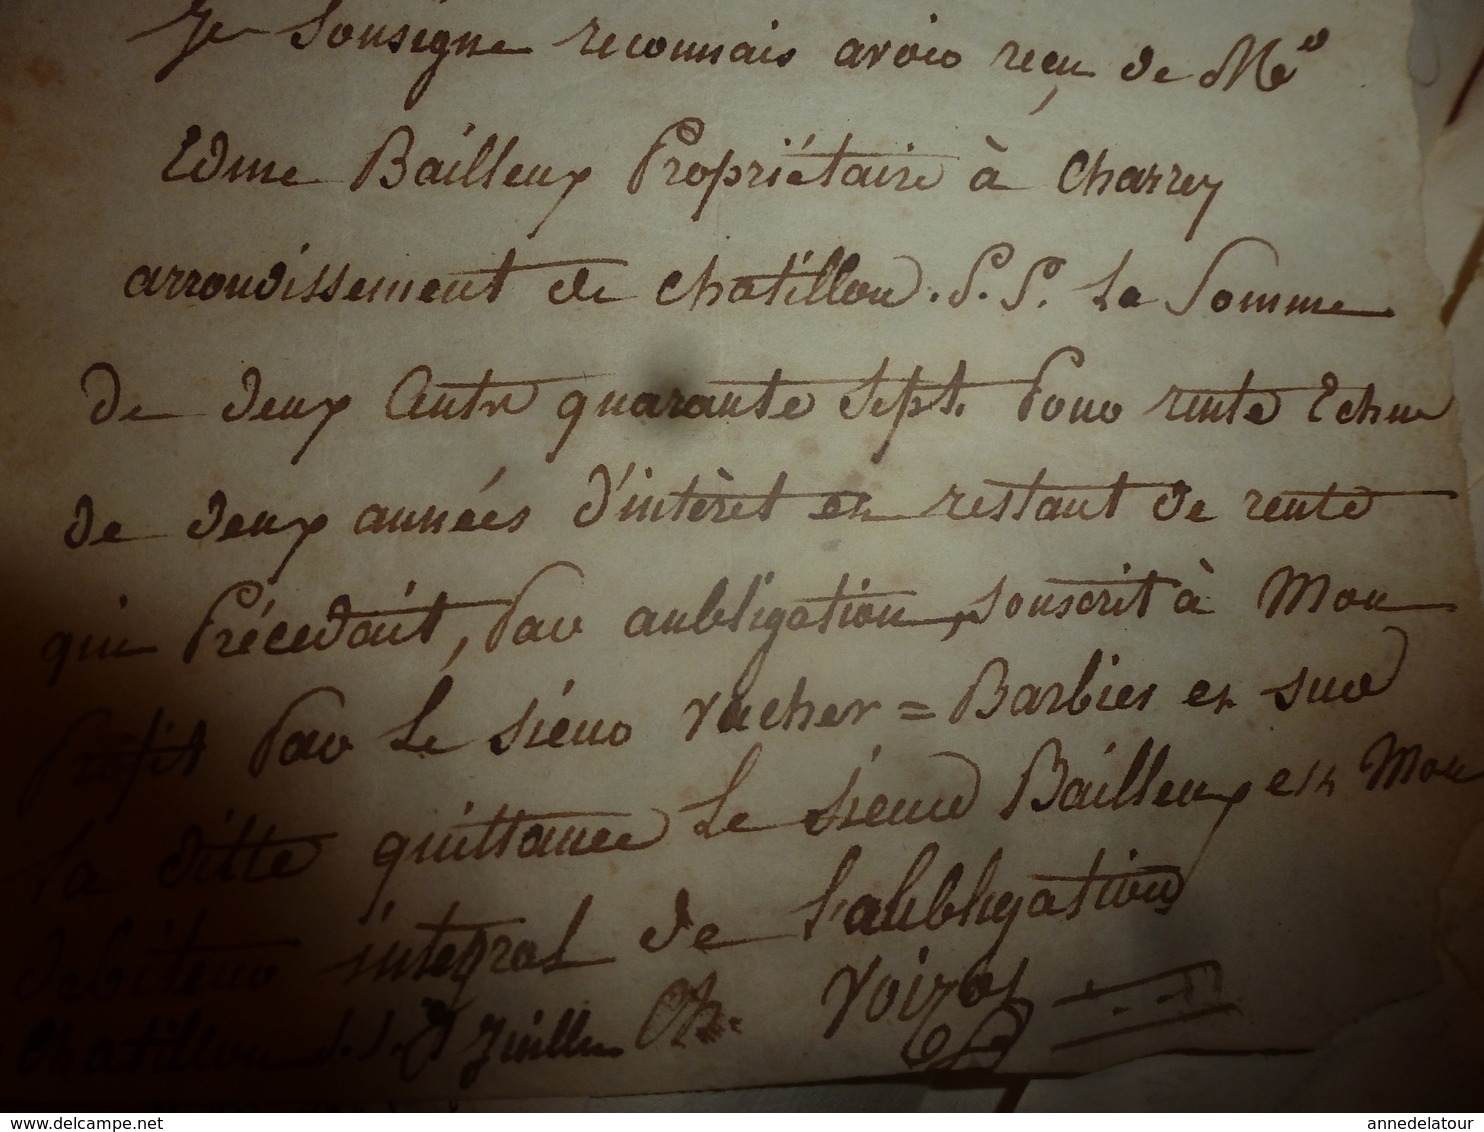 Je Sousigne reconnais avoir reçu de Mr
Edme Bailleux Propriétaire à Charrey
arrondissement de Chatillon. S. S. la Somme
de deux Centr quarante Sept. Pour rente Echue
de deux années d'intèrèt et restant de rente
qui Précédait, Par aubligation, Sonscrit à Mon
Profit Par le Sieur Vacher = Barbier et sur
la ditte quittance le Sieur Bailleux est Mon
debiteur intégral de l'aubligation
Chatillon S. S. 8 Juillet Ch. Voizot
annedelatour